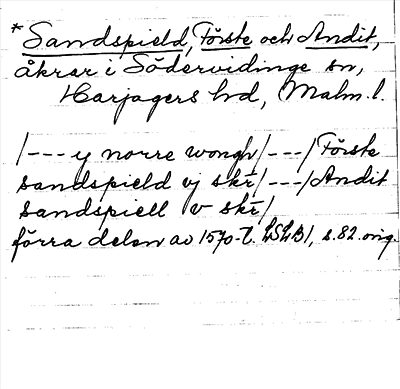 * Sandspield, Förste och Andit,
åkrar i Södervidinge sn,
Harjagers hd, Malm. l.
/--- y norre wongh/---/Förste
sandspield vj skr̄/---/Andit
sandspiell v skr̄/
förra delen av 1570-t. LSLB1, s. 82. orig.